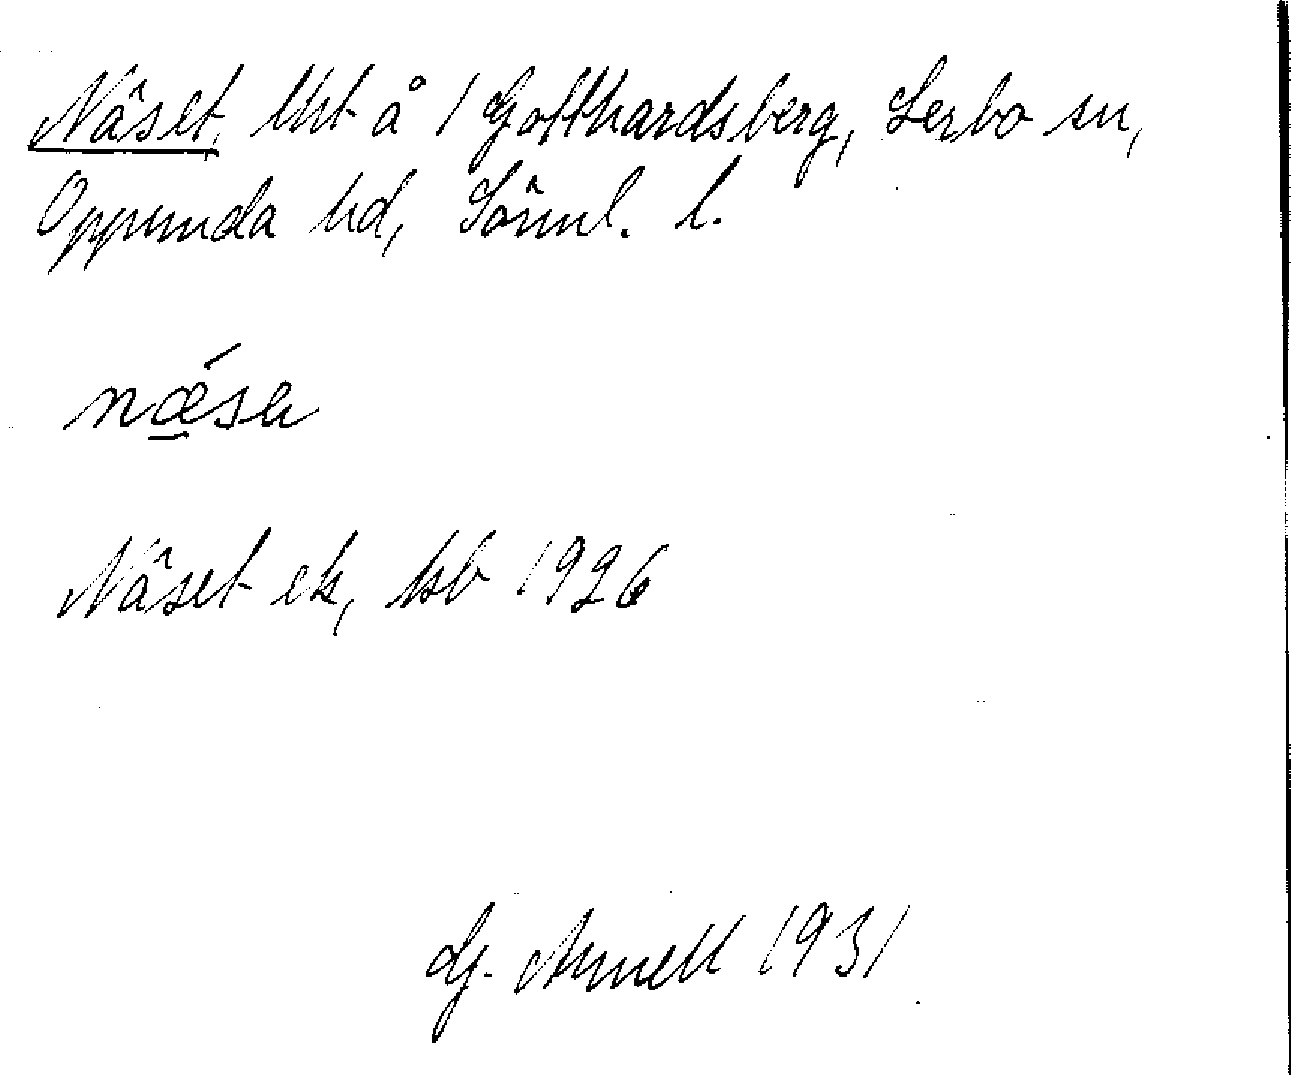 Näset, lht å 1 Gotthardsberg, Lerbo sn,
Oppunda hd, Söml. l.
nǽ̱sa
Näset ek, kb 1926
G. Arnell 1931